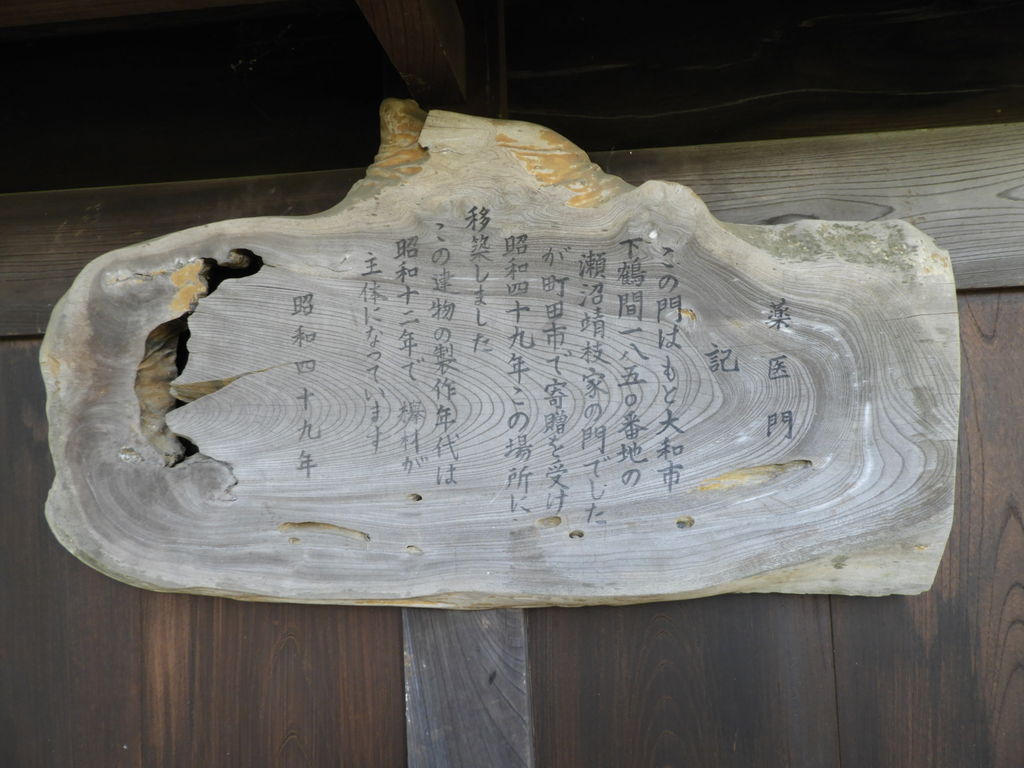 薬医門
記
この門はもと大和市
下鶴間一八五〇番地の
瀬沼靖枝家の門でした
が町田市で寄贈を受け
昭和四十九年この場所に
移築しました
この建物の製作年代は
昭和十二年で欅材が
主体になっています
昭和四十九年